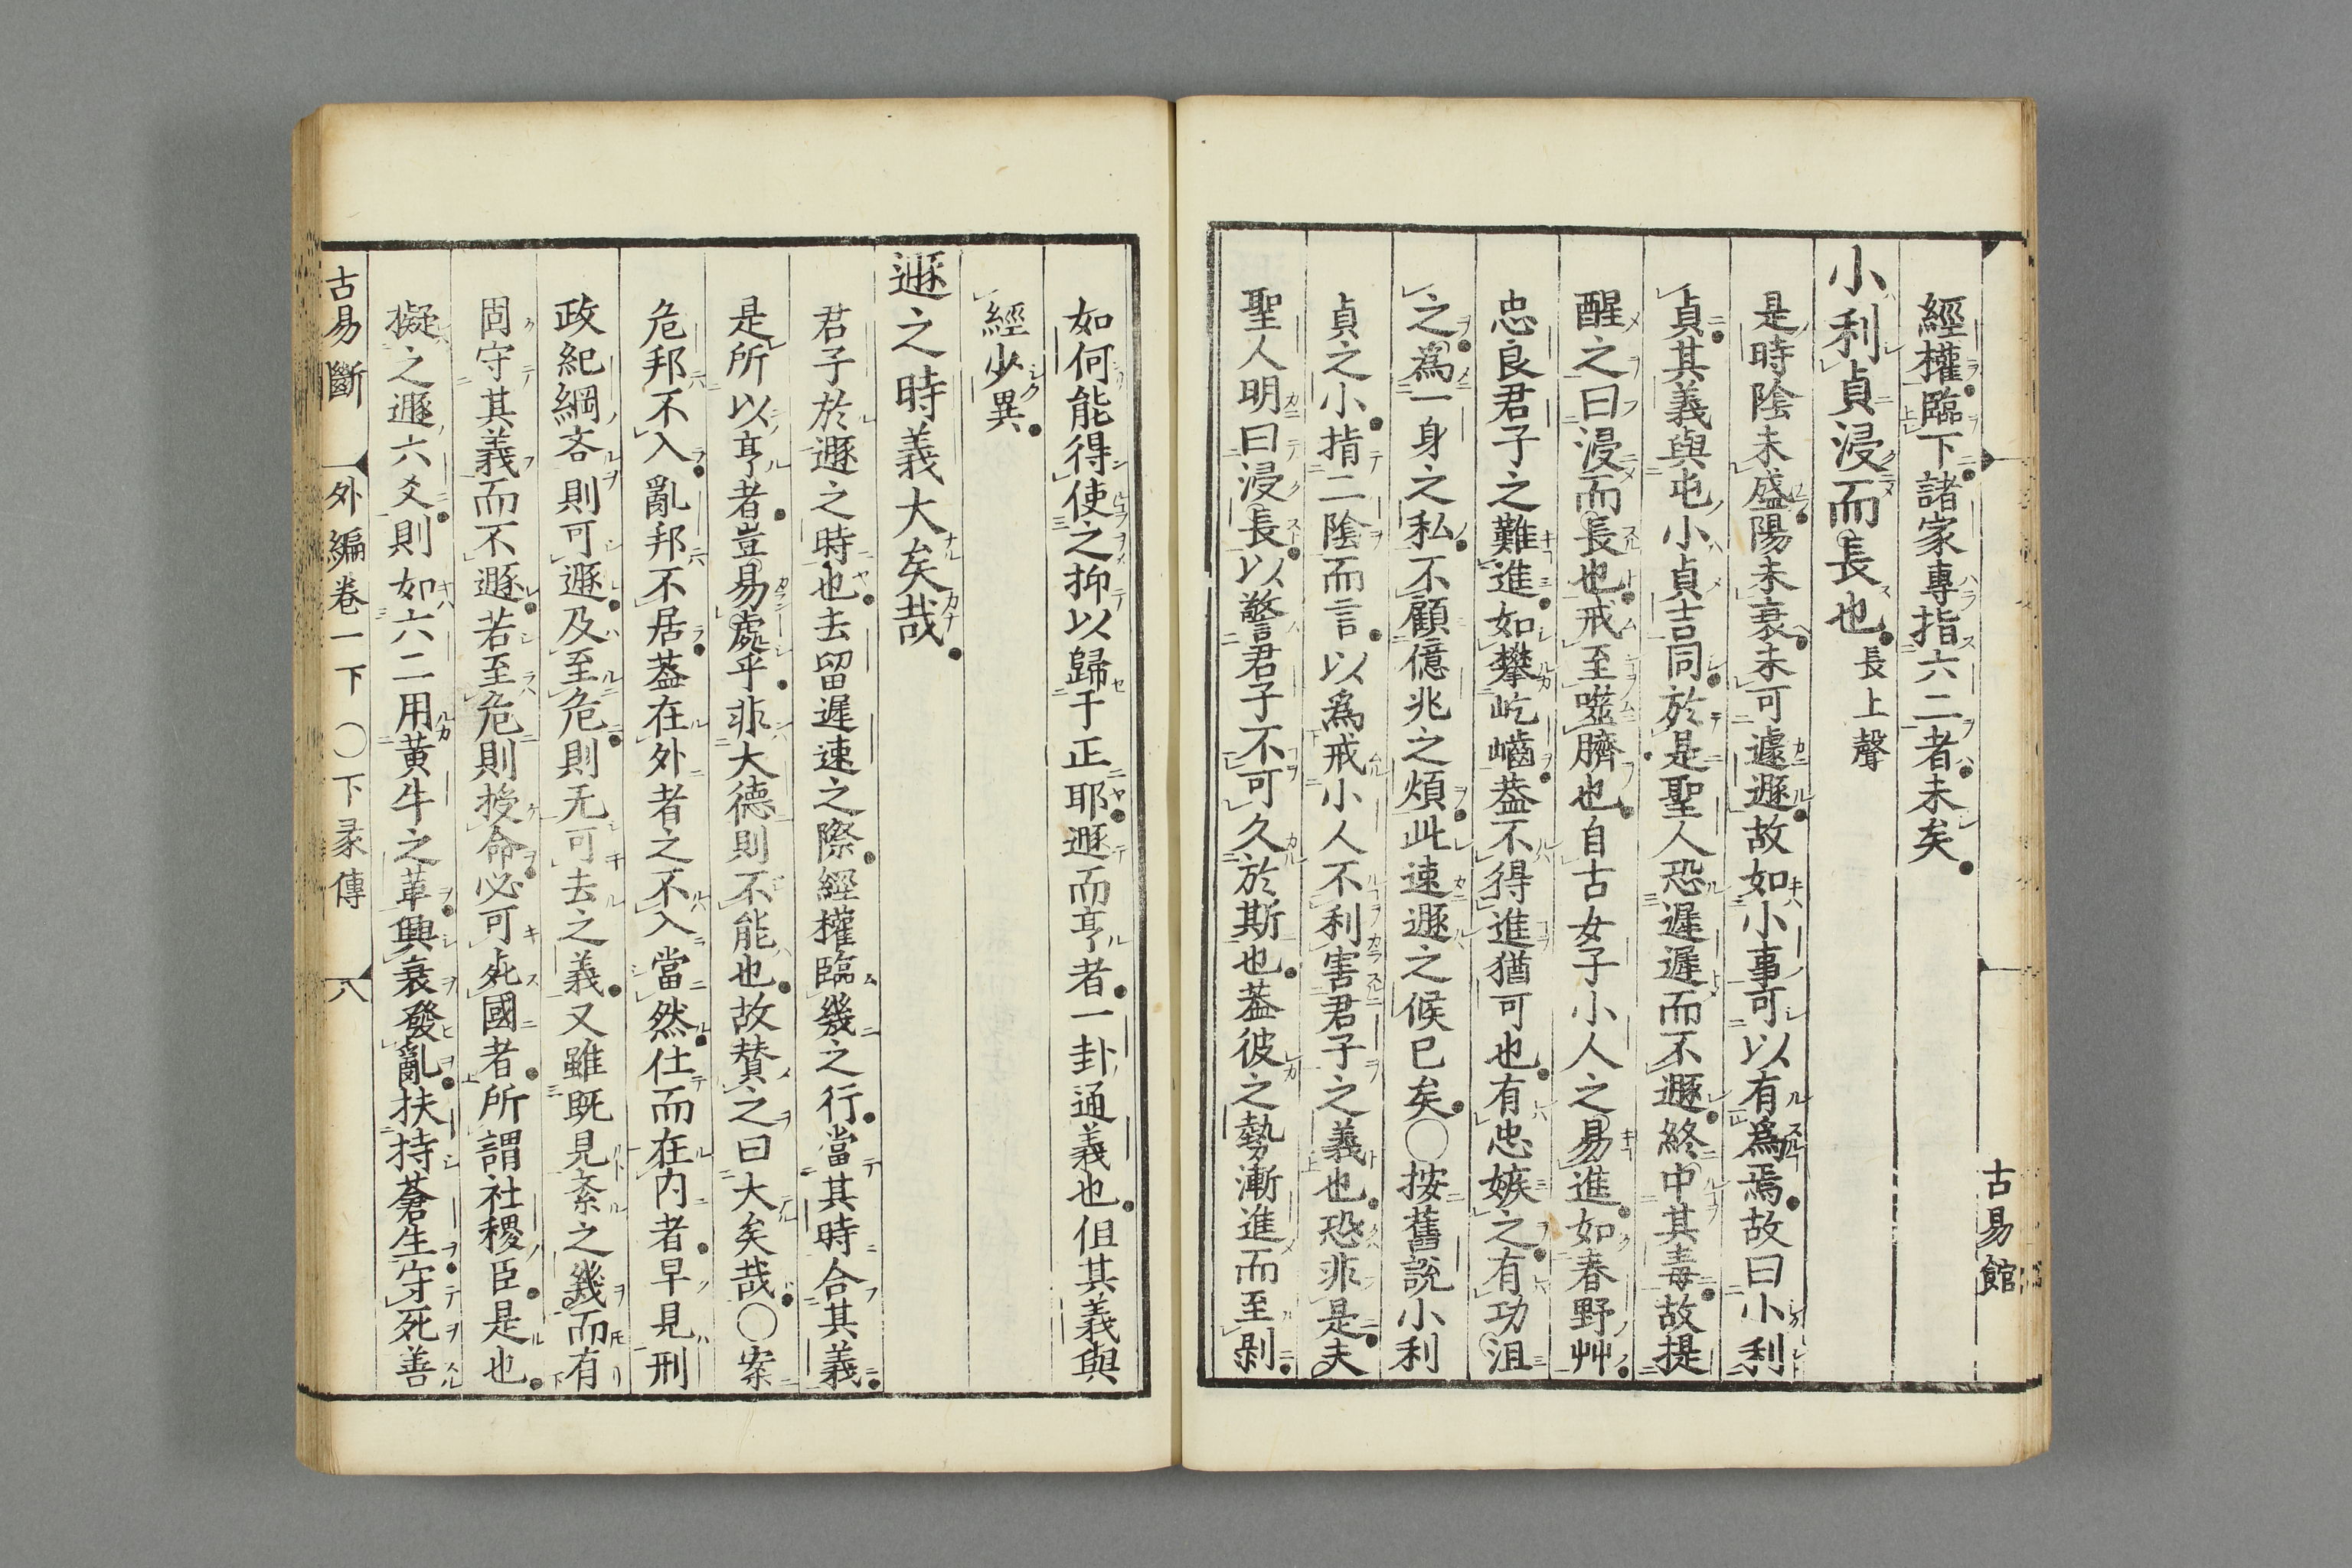 經權臨下諸家專指六二者未矣
小利貞浸而長也長上聲
是時陰未盛陽未衰未可遽遯故如小事可以有爲焉故曰小利
貞其義與屯小貞吉同於是聖人恐遲遲而不遯終中其毒故提
醒之曰浸而長也戒至噬臍也自古女子小人之易進如春野艸
忠良君子之難進如攀屹嶬葢不得進猶可也有忠嫉之有功沮
之爲一身之私不顧億兆之煩此速遯之候已矣○按舊說小利
貞之小指二陰而言以爲戒小人不利害君子之義也恐非是夫
聖人明曰浸長以警君子不可久於斯也葢彼之勢漸進而至剝
古易館
如何能得使之抑以歸于正耶遯而亨者一卦通義也但其義與
經少異
遯之時義大矣哉
君子於遯之時也去留遲速之際經權臨幾之行當其時合其義
是所以亨者豈易處乎非大德則不能也故賛之曰大矣哉○案
危邦不入亂邦不居葢在外者之不入當然仕而在内者早見刑
政紀綱吝則可遯及至危則无可去之義又雖既見紊之幾而有
固守其義而不遯若至危則授命必可死國者所謂社稷臣是也
擬之遯六爻則如六二用黃牛之革興衰發亂扶持蒼生守死善
古易斷　外編卷一下　○下彖傳　八